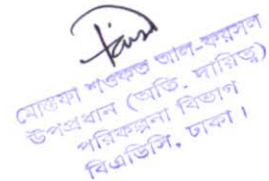 মোস্তফা শওকত আল-ফয়সল
উপপ্রধান (অতি. দায়িত্ব)
পরিকল্পনা বিভাগ
বিএডিসি, ঢাকা।